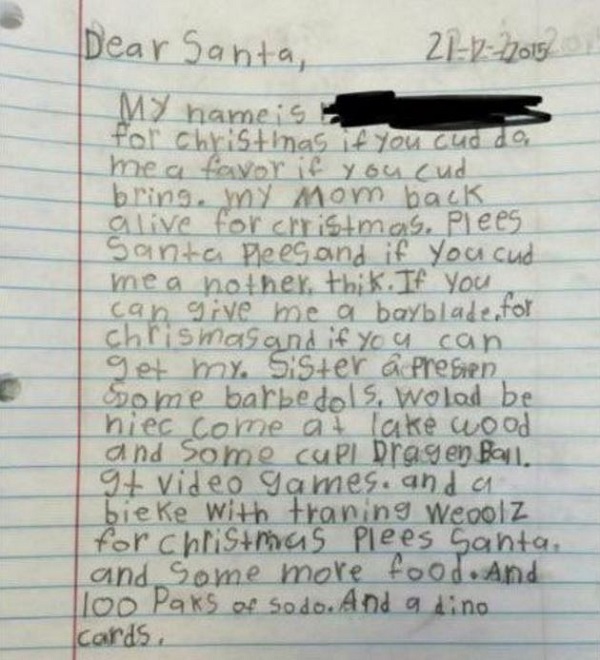 Dear Santa, 21-12-2015
My name is
for christmas if you cud do
me a favor if you cud
bring. my mom back
alive for crristmas. Plees
Santa Plees and if you cud
me a nother. thik. If you
can give me a bayblade. for
chrismas and if you can
get my. Sister a presien
Some barbedols. wolad be
niec come at lake wood
and Some cupl Dragen Ball.
gt video games. and a
bieke with traning weoolz
for christmas Plees Santa.
and Some more food. And
100 Paks of sodo. And a dino
cards.